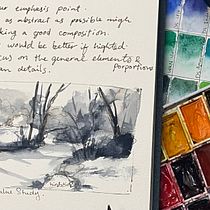 our emphesis point.
as abstract as possible might
king a good composition.
would be better if lighted
cus on the general elements &
porportions
an details.
Value Study.